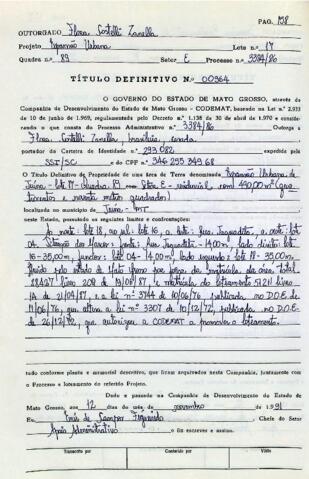 PAG. 138
OUTORGADO Flora Costelli Zanella
Projeto Expansão Urbana Lote nº 17
Quadra nº 89 Setor E Processo nº 3384/86
TÍTULO DEFINITIVO Nº 00364
O GOVERNO DO ESTADO DE MATO GROSSO, através da
Companhia de Desenvolvimento do Estado de Mato Grosso - CODEMAT, baseado na Lei nº 2.933
de 10 de junho de 1969, regulamentada pelo Decreto nº 1.138 de 30 de abril de 1970 e considerando
o que consta do Processo Administrativo nº 3384/86 Outorga a
Flora Costelli Zanella, brasileira, casada
portador da Carteira de Identidade nº 293.082 expedida pela
SST/SC e do CPF nº 346 255 349 68
O Título Definitivo de Propriedade de uma área de Terra denominada Expansão Urbana de
Juína - lote 17 - Quadra 89 com Setor E - residencial, com 490,00m² (quatrocentos
e noventa metros quadrados)
localizada no município de Juína - MT
neste Estado, possuindo os seguintes limites e confrontações:
Ao norte: lote 18, ao sul: lote 16, a leste: Rua, a oeste: lote
04. frente: Rua - 14,00m, lado direito: lote
16 - 35,00m, fundos: lote 04 - 14,00m, lado esquerdo: lote 18 - 35,00m.
pelo Estado de Mato Grosso matrícula da área total
livro de e matrícula do loteamento livro
de 21/09/87, e a lei nº 3744 de 10/06/76, publicada no D.O.E. de
11/06/76, que altera a lei nº 3307 de 10/12/72, publicada no D.O.E.
de 26/12/72, que autorizou a CODEMAT a promover o loteamento.
tudo conforme planta e memorial descritivo, que ficam arquivados nesta Companhia, juntamente com
o Processo e loteamento do referido Projeto.
Dado e passado na Companhia de Desenvolvimento do Estado de
Mato Grosso, aos 12 dias do mês de novembro de 1991
Eu, de Campos Figueiredo Chefe do Setor
Apoio Administrativo o fiz escrever e assino.
Transcrito por Conferido por Visto